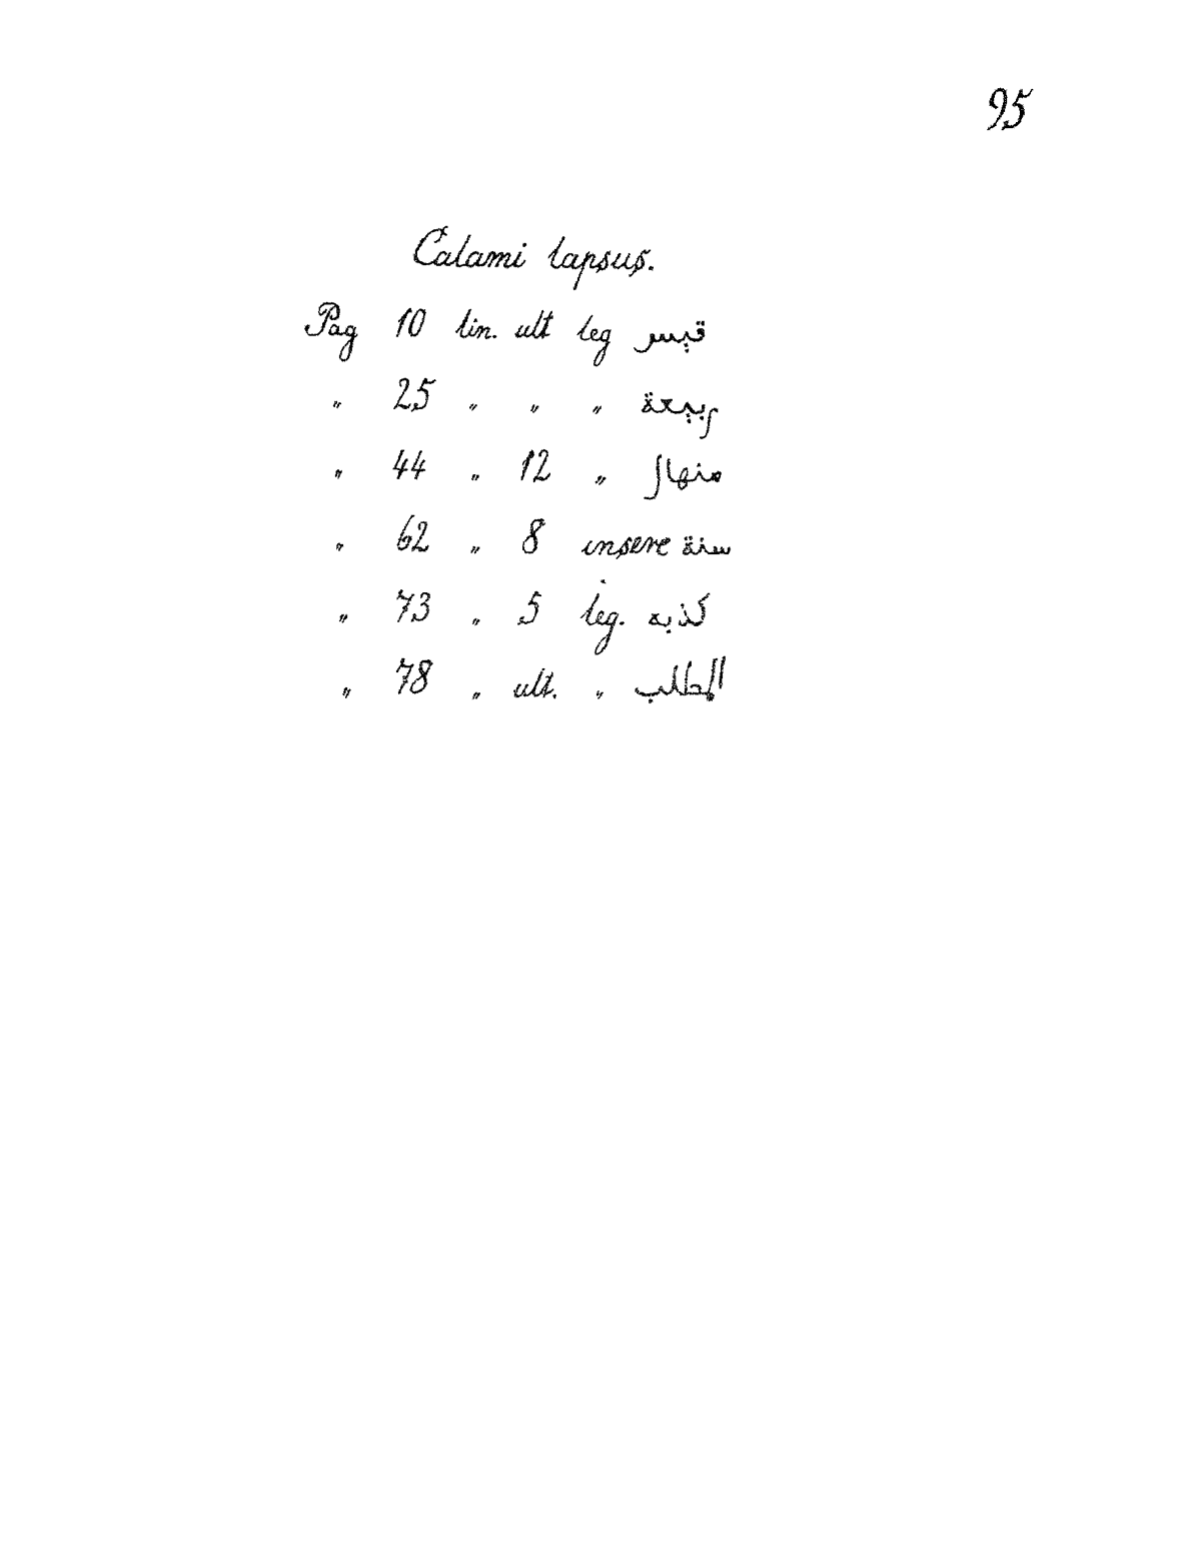 95
Calami lapsus.
Pag 10 lin. ult leg قيس
„ 25 „ „ „ ربيعة
„ 44 „ 12 „ منهال
„ 62 „ 8 insere سنة
„ 73 „ 5 leg. كذبه
„ 78 „ ult. „ المطلب